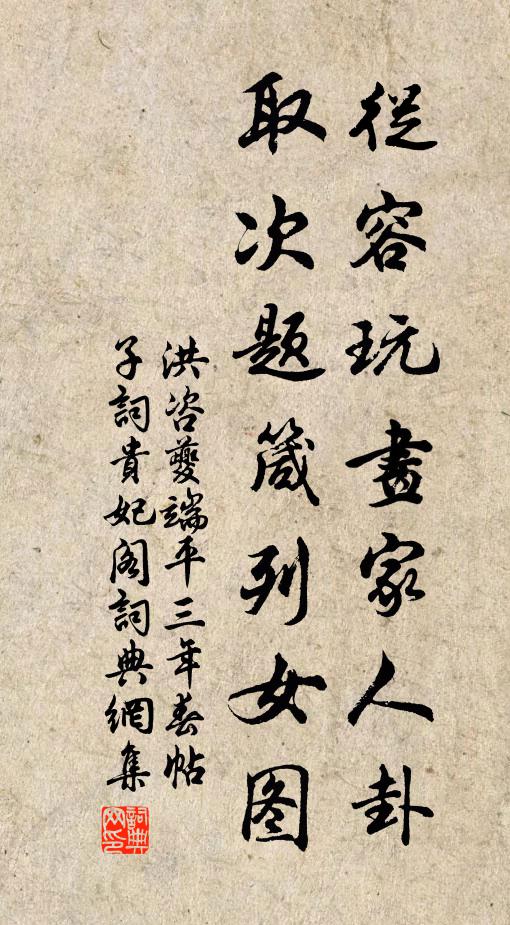 從容玩畫家人卦
取次题箴列女图
洪咨夔端平三年春帖
子詞貴妃阁詞典網集
詞典网印